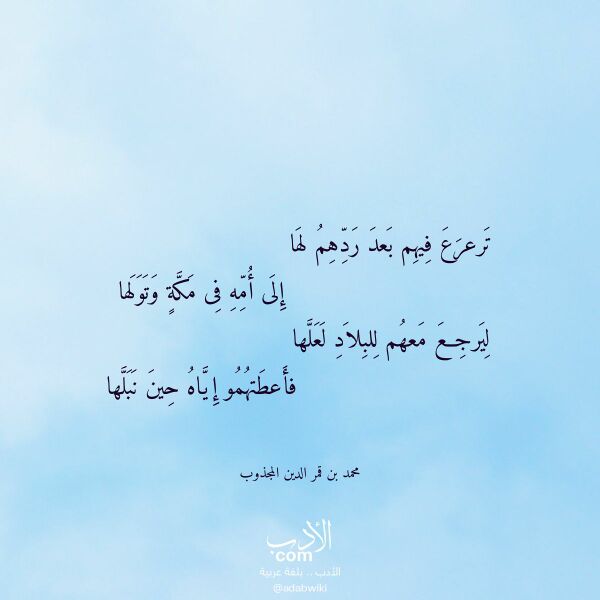 تَرعرَعَ فِيهِم بَعدَ رَدِّهِمُ لهَا
إِلَى أُمِّهِ فِى مَكَّةٍ وَتَوَلهَا
لِيَرجِعَ مَعهُم لِلبِلاَدِ لَعَلَّها
فأَعطَتهُمُو إِيَّاهُ حِينَ نَبَلَّها
محمد بن قمر الدين المجذوب
الأدب
com
الأدب .. بلغة عربية
@adabwiki